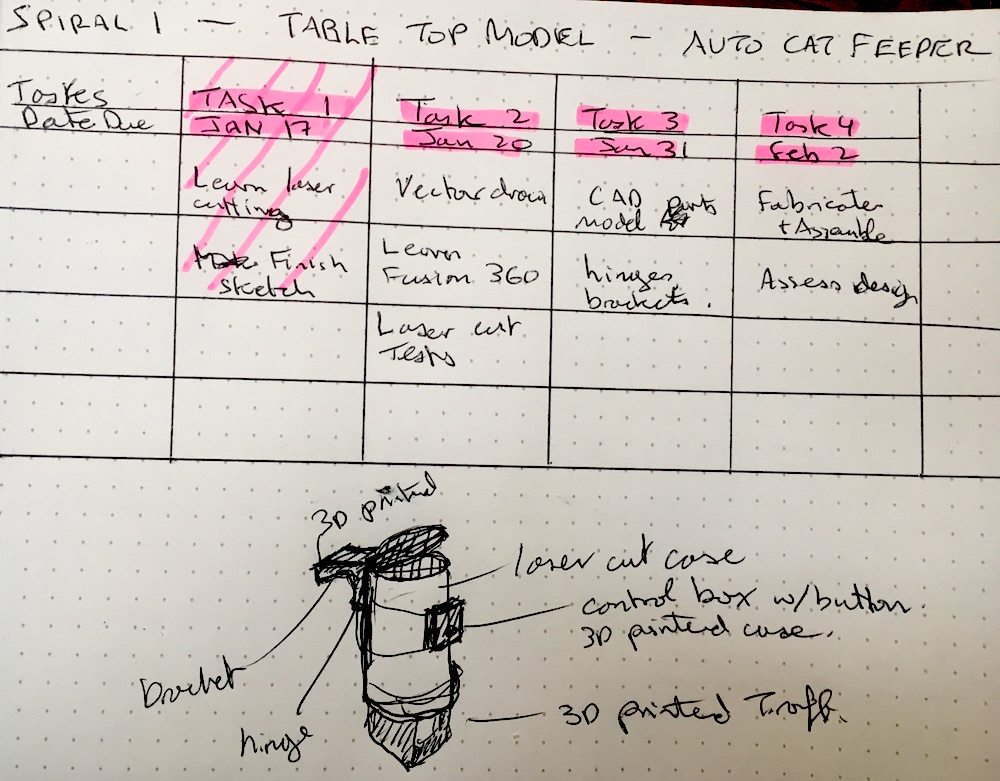 SPIRAL 1 — TABLE TOP MODEL — AUTO CAT FEEPER
Taskes
Date Due
TASK 1
JAN 17
Task 2
Jan 20
Task 3
Jan 31
Task 4
Feb 2
Learn laser
cutting
Vector draw
CAD parts
model
Fabricate
+ Assemble
Finish
sketch
Learn
Fusion 360
hinges,
brackets.
Assess design
Laser cut
Tests
3D printed
laser cut case
control box w/button
3D printed case.
bracket
hinge
3D printed Troff.